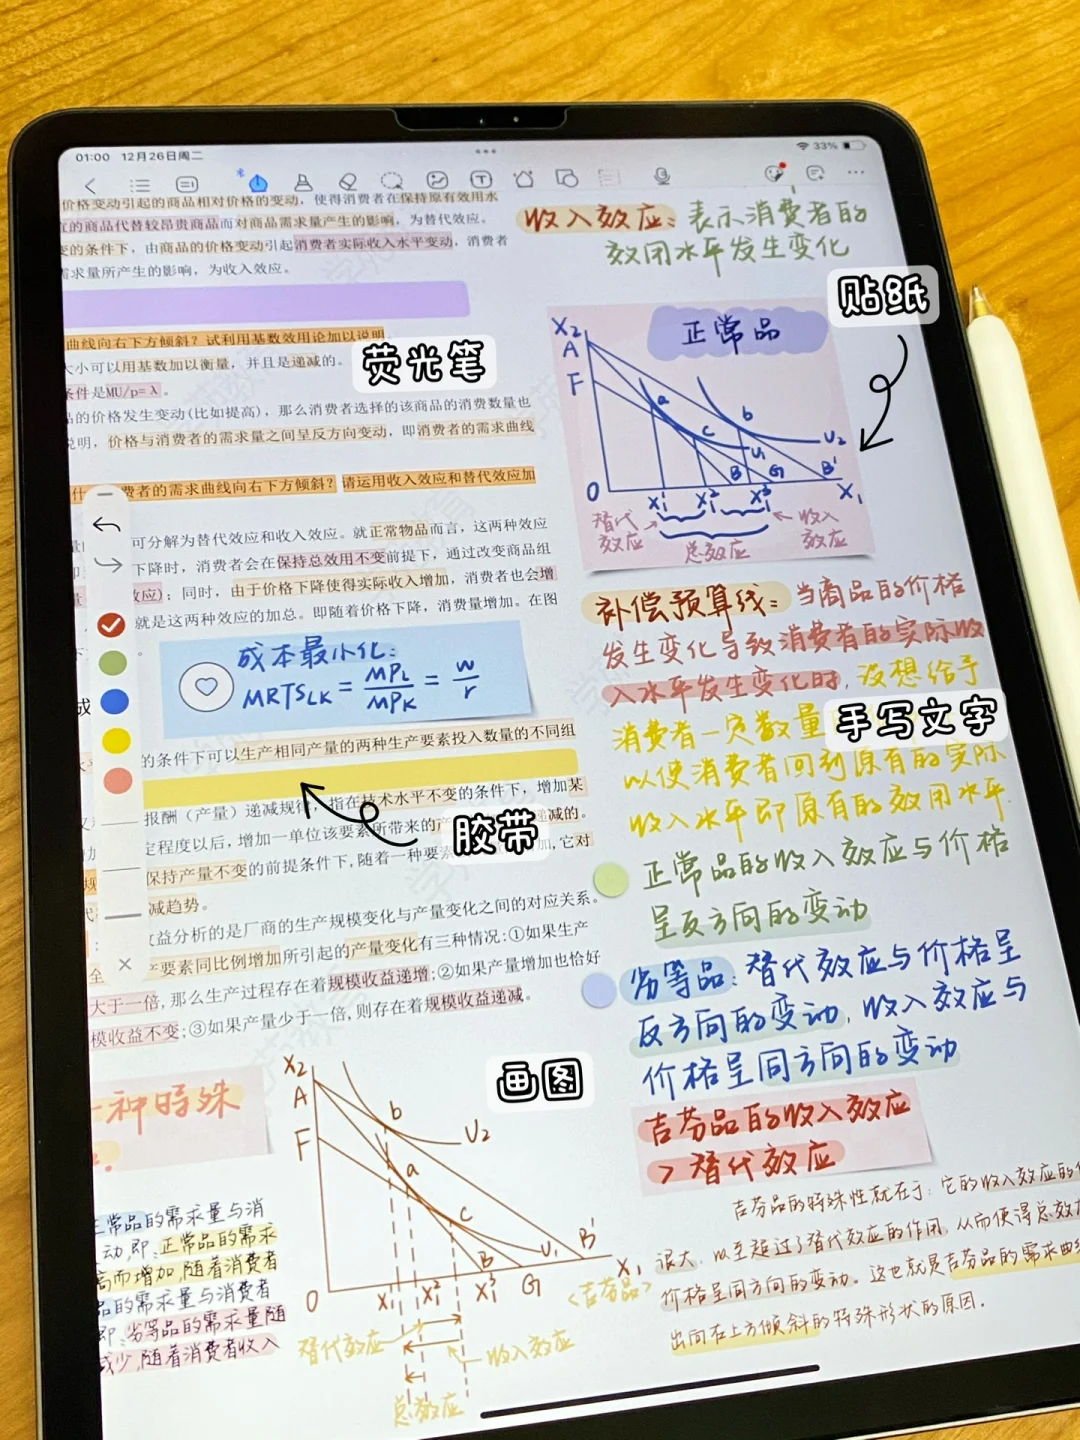 01:00 12月26日周二
33%
价格变动引起的商品相对价格的变动，使得消费者在保持原有效用水
宜的商品代替较昂贵商品而对商品需求量产生的影响，为替代效应。
变的条件下，由商品的价格变动引起消费者实际收入水平变动，消费者
需求量所产生的影响，为收入效应。
曲线向右下方倾斜？试利用基数效用论加以说明
大小可以用基数加以衡量，并且是递减的。
条件是MU/p=λ。
品的价格发生变动(比如提高)，那么消费者选择的该商品的消费数量也
说明，价格与消费者的需求量之间呈反方向变动，即消费者的需求曲线
荧光笔
费者的需求曲线向右下方倾斜？请运用收入效应和替代效应加
可分解为替代效应和收入效应。就正常物品而言，这两种效应
下降时，消费者会在保持总效用不变前提下，通过改变商品组
效应)；同时，由于价格下降使得实际收入增加，消费者也会增
就是这两种效应的加总。即随着价格下降，消费量增加。在图
成本最小化：
MRTSLK = MPL/MPK = w/r
成
的条件下可以生产相同产量的两种生产要素投入数量的不同组
报酬（产量）递减规律，指在技术水平不变的条件下，增加某
定程度以后，增加一单位该要素所带来的产
递减的。
胶带
保持产量不变的前提条件下,随着一种要素
加,它对
减趋势。
效益分析的是厂商的生产规模变化与产量变化之间的对应关系。
要素同比例增加所引起的产量变化有三种情况:①如果生产
大于一倍,那么生产过程存在着规模收益递增;②如果产量增加也恰好
模收益不变;③如果产量少于一倍,则存在着规模收益递减。
一种特殊
正常品的需求量与消
动,即:正常品的需求
高而增加,随着消费者
品的需求量与消费者
即:劣等品的需求量随
减少,随着消费者收入
画图
X2
A
F
b
a
c
U2
U1
B
B'
O
X1
X1²
X1³
G
X1
〈吉芬品〉
替代效应
收入效应
总效应
收入效应：表示消费者的
效用水平发生变化
贴纸
正常品
X2
A
F
a
b
c
U2
U1
B
G
B'
O
X1¹
X1²
X1³
X1
替代
效应
总效应
收入
效应
补偿预算线：当商品的价格
发生变化导致消费者的实际收
入水平发生变化时,设想给予
消费者一定数量
手写文字
以使消费者回到原有的实际
收入水平即原有的效用水平.
正常品的收入效应与价格
呈反方向的变动
劣等品：替代效应与价格呈
反方向的变动,收入效应与
价格呈同方向的变动
吉芬品的收入效应
>替代效应
吉芬品的特殊性就在于：它的收入效应的
很大，以至超过了替代效应的作用,从而使得总效
价格呈同方向的变动。这也就是吉芬品的需求曲
出向右上方倾斜的特殊形状的原因.